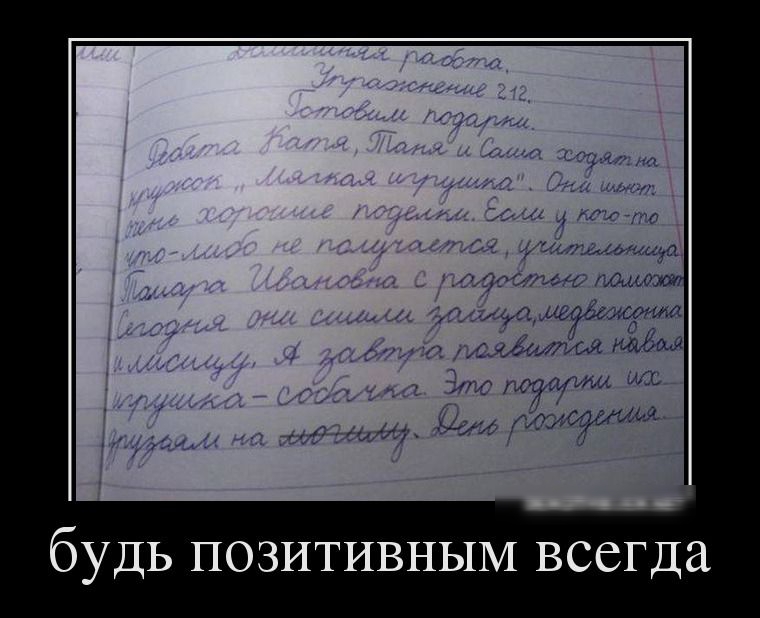 или
Домашняя работа.
Упражнение 212.
Готовим подарки.
Ребята Катя, Таня и Саша ходят на
кружок „Мягкая игрушка". Они шьют
очень хорошие поделки. Если у кого-то
что-либо не получается, учительница
Тамара Ивановна с радостью поможет
Сегодня они сшили зайца, медвежонка
и лисицу. А завтра появится новая
игрушка – собачка. Это подарки их
друзьям на могилу. День рождения.
будь позитивным всегда